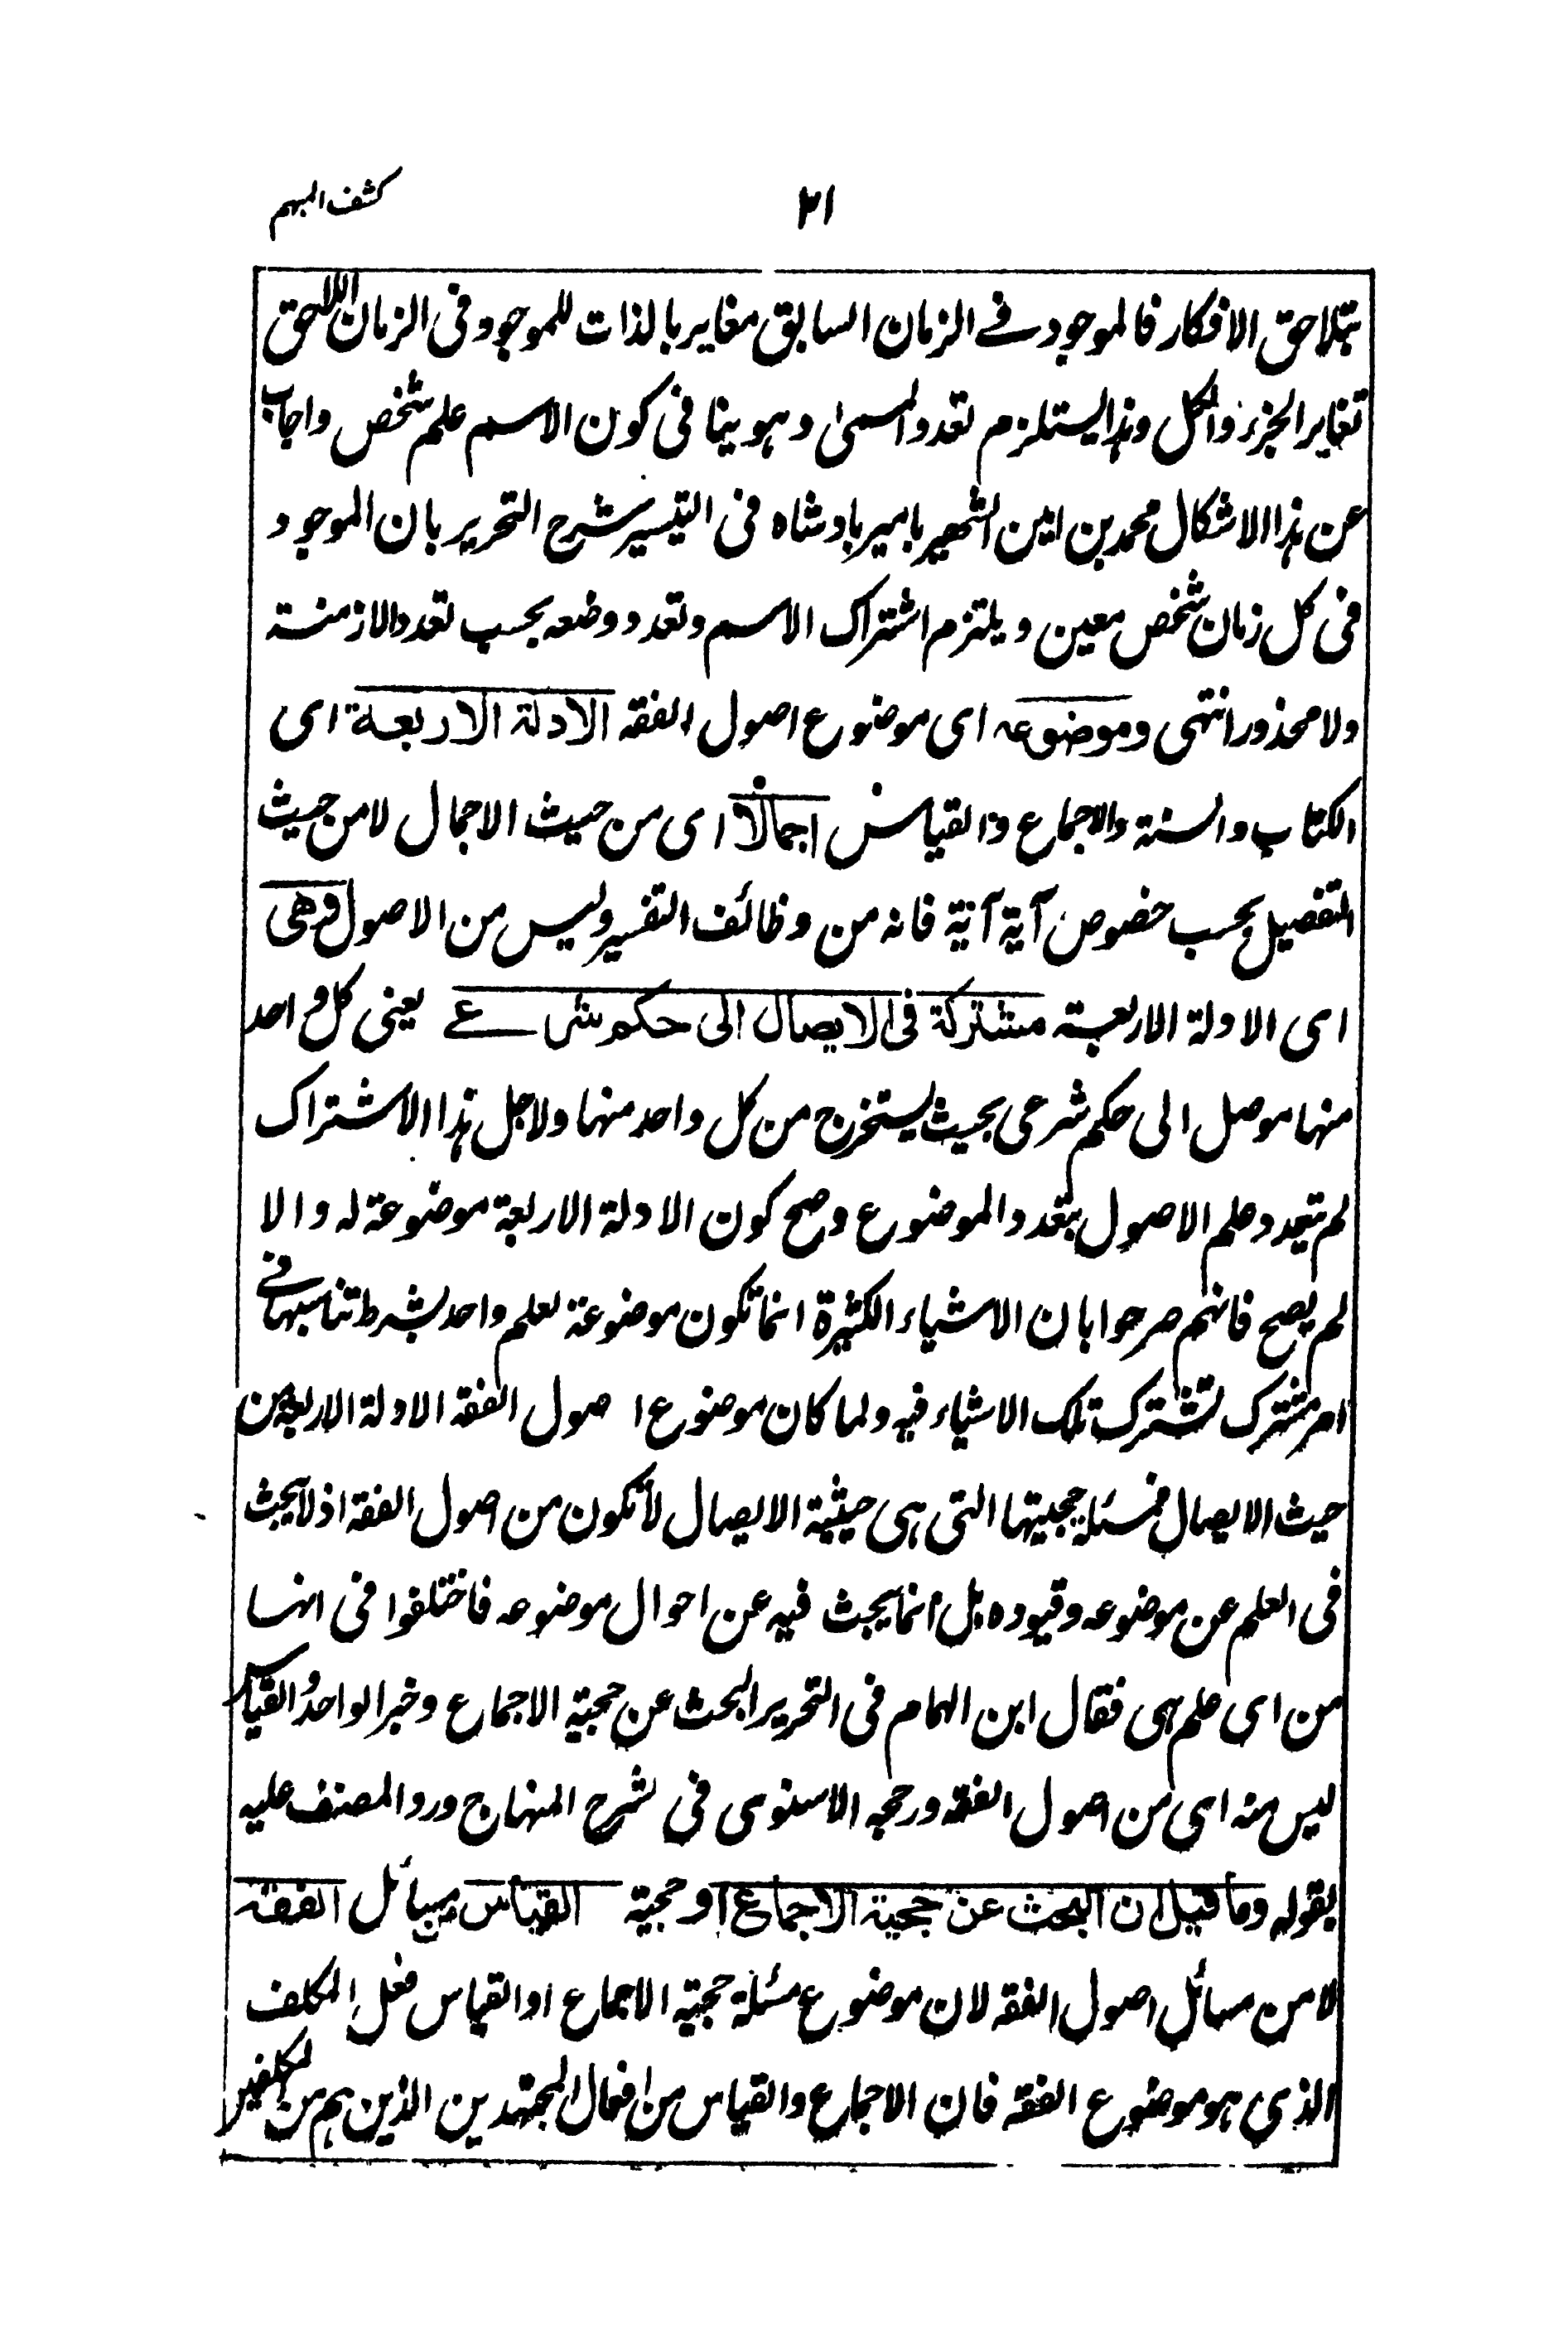 كشف المبهم
٢١
بتلاحق الافكار فالموجود في الزمان السابق مغاير بالذات للموجود في الزمان اللاحق
تغاير الجزء والكل وهذا يستلزم تعدد المسمىٰ وهو ينافي كون الاسم علم شخص واجاب
عن هذا الاشكال محمد بن امين الشهير بامير بادشاه في التيسير شرح التحرير بان الموجود
في كل زمان شخص معين ويلتزم اشتراك الاسم وتعدد وضعه بحسب تعدد الازمنة
ولا محذور انتهى وموضوعه اى موضوع اصول الفقه الادلة الاربعة اى
الكتاب والسنة والاجماع والقياس اجمالاً اى من حيث الاجمال لا من حيث
التفصيل بحسب خصوص آية آية فانه من وظائف التفسير وليس من الاصول وهى
اى الادلة الاربعة مشتركة فى الايصال الى حكم شرعي يعنى كل واحد
منها موصل الى حكم شرعى بحيث يستخرج من كل واحد منها ولاجل هذا الاشتراك
لم يتعدد علم الاصول بتعدد الموضوع وصح كون الادلة الاربعة موضوعة له والا
لم يصح فانهم صرحوا بان الاشياء الكثيرة انما تكون موضوعة لعلم واحد بشرط تناسبها في
امر مشترك تشترك تلك الاشياء فيه ولما كان موضوع اصول الفقه الادلة الاربعة من
حيث الايصال فمسئلة حجيتها التى هى حيثية الايصال لا تكون من اصول الفقه اذ لا يبحث
فى العلم عن موضوعه وقيوده بل انما يبحث فيه عن احوال موضوعه فاختلفوا فى انها
من اى علم هى فقال ابن الهمام فى التحرير البحث عن حجية الاجماع وخبر الواحد والقياس
ليس منه اى من اصول الفقه ورجحه الاسنوى في شرح المنهاج ورد المصنف عليه
بقوله وما قيل ان البحث عن حجية الاجماع او حجية القياس من مسائل الفقه
لا من مسائل اصول الفقه لان موضوع مسئلة حجية الاجماع او القياس فعل المكلف
الذي هو موضوع الفقه فان الاجماع والقياس من افعال المجتهدين الذين هم من المكلفين